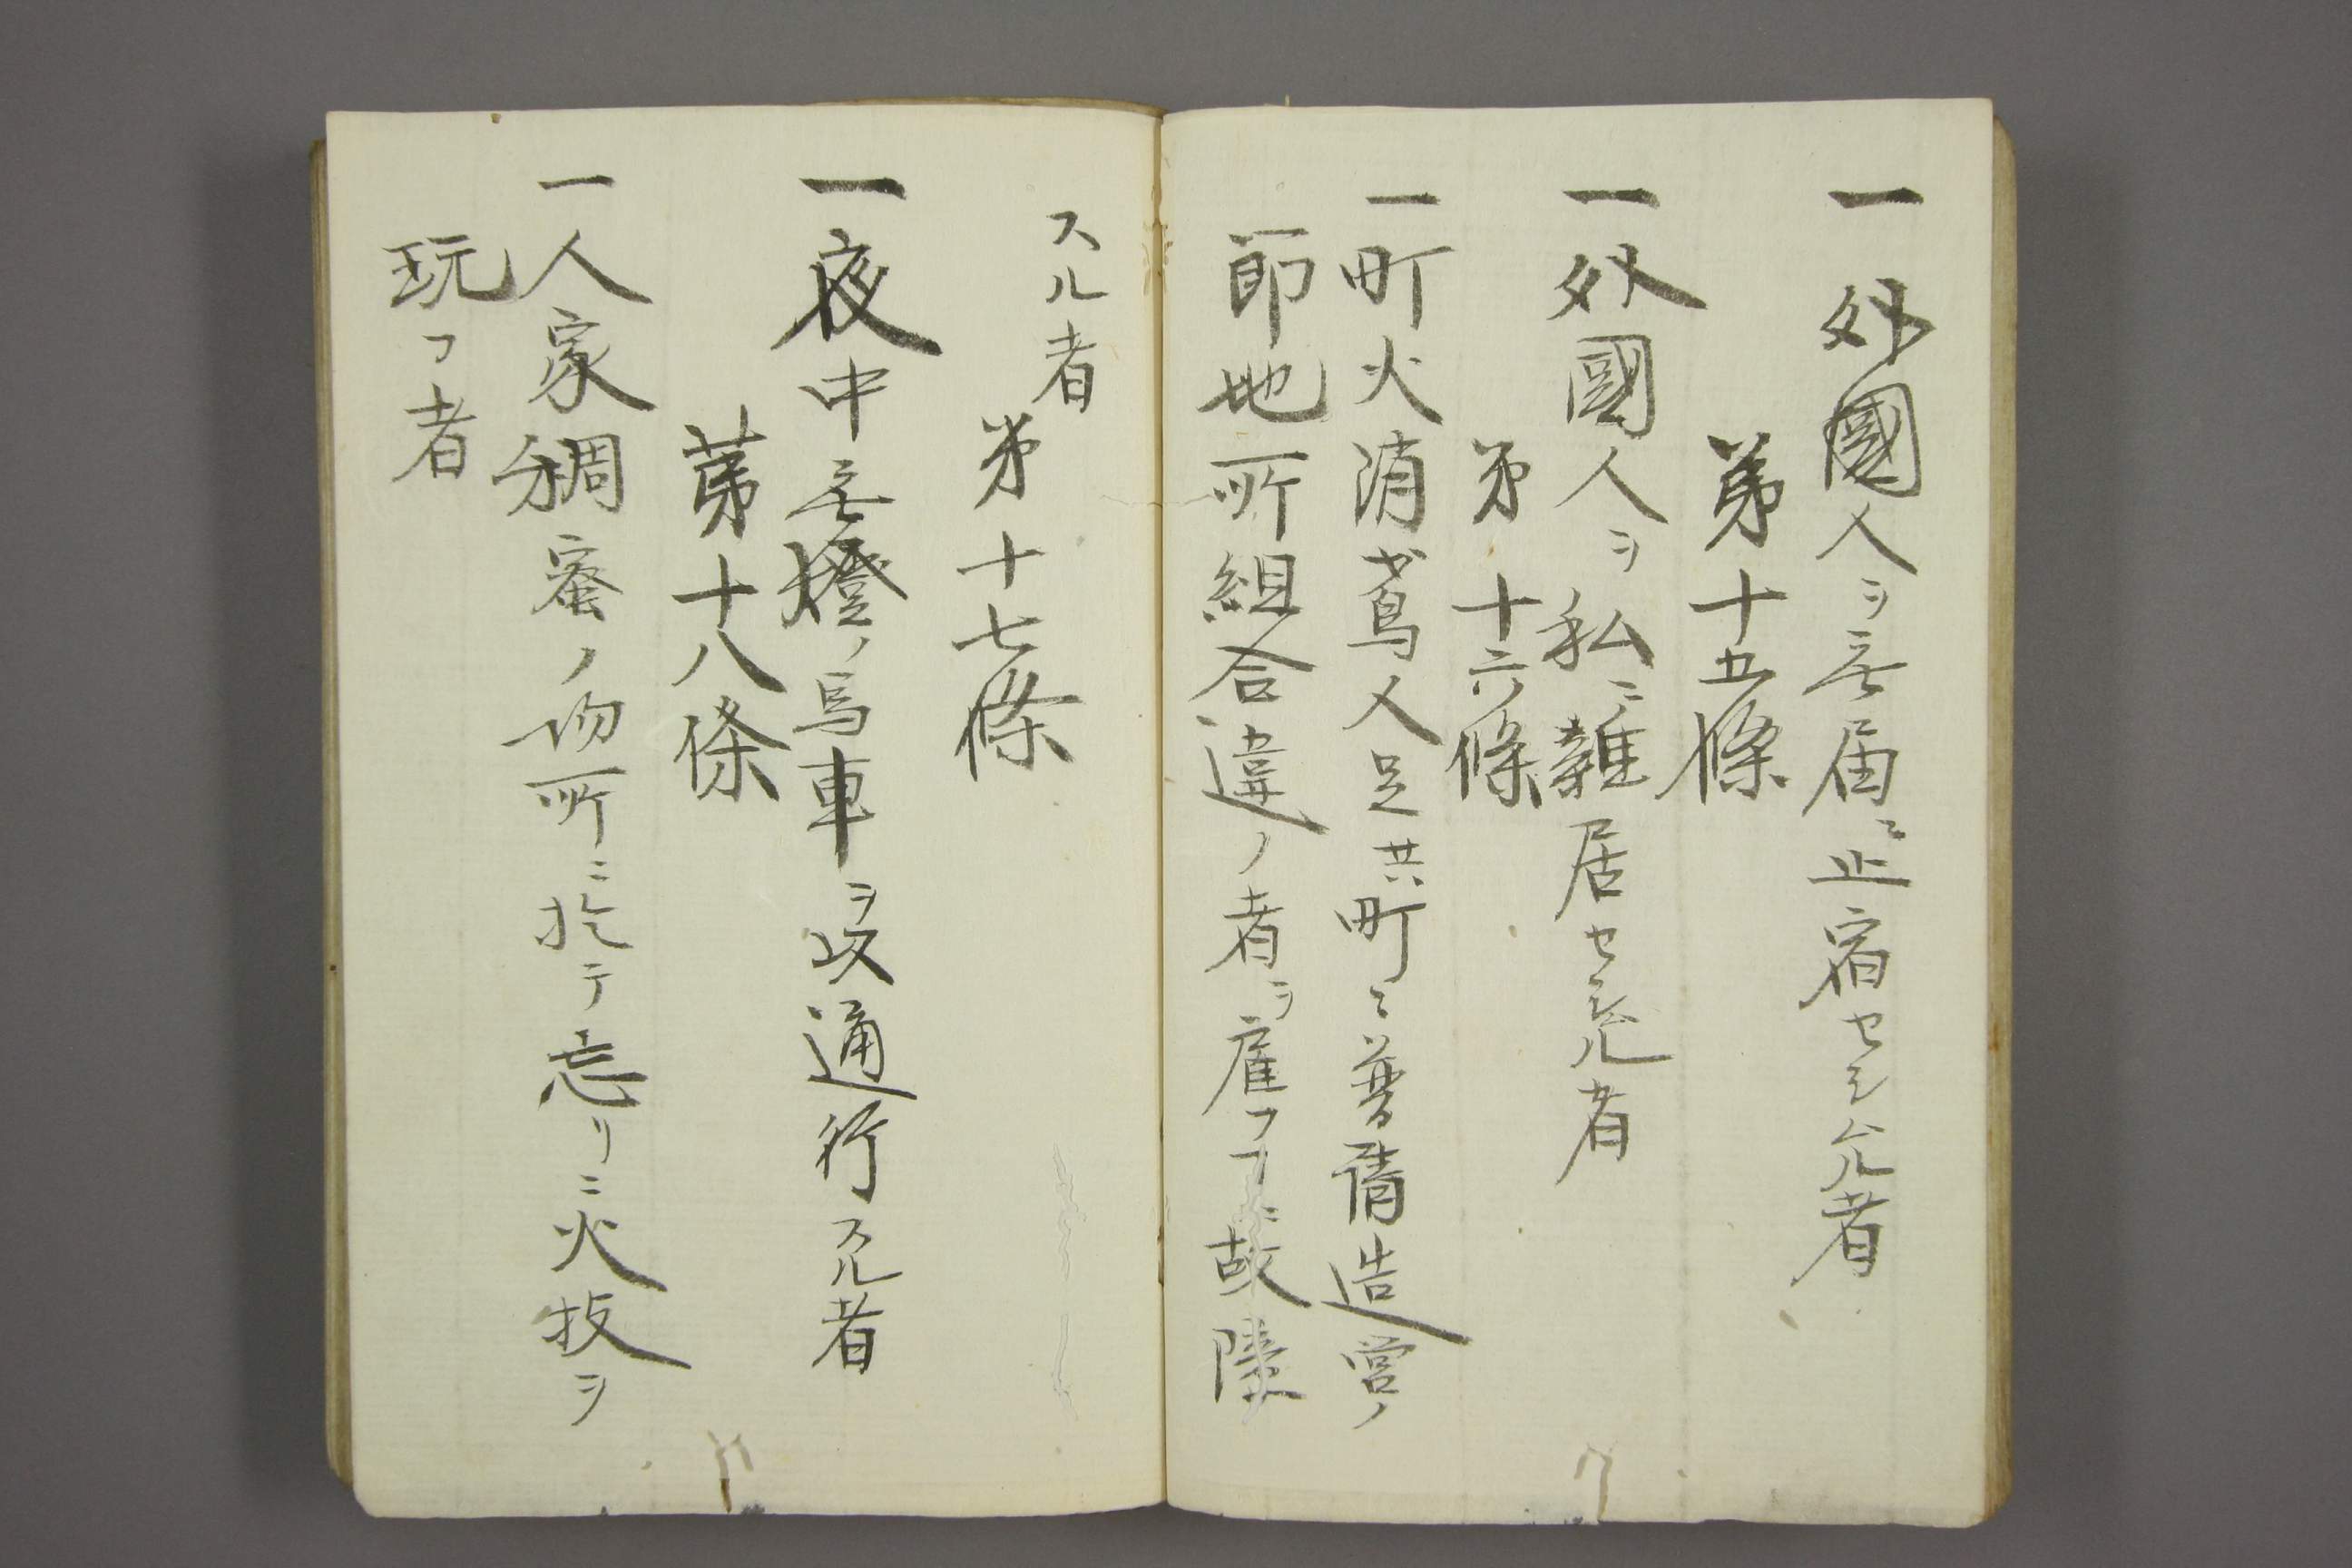 一外國人ヲ無届ニ止宿セシムル者
第十五條
一外國人ヲ私ニ雜居セシムル者
第十六條
一町火消或鳶人足共町ニ普請造営ノ
節地所組合違ノ者ヲ雇フヿニ故障
スル者
第十七條
一夜中無燈ノ馬車ヲ以通行スル者
第十八條
一人家稠蜜ノ場所ニ於テ忘リニ火技ヲ
玩フ者